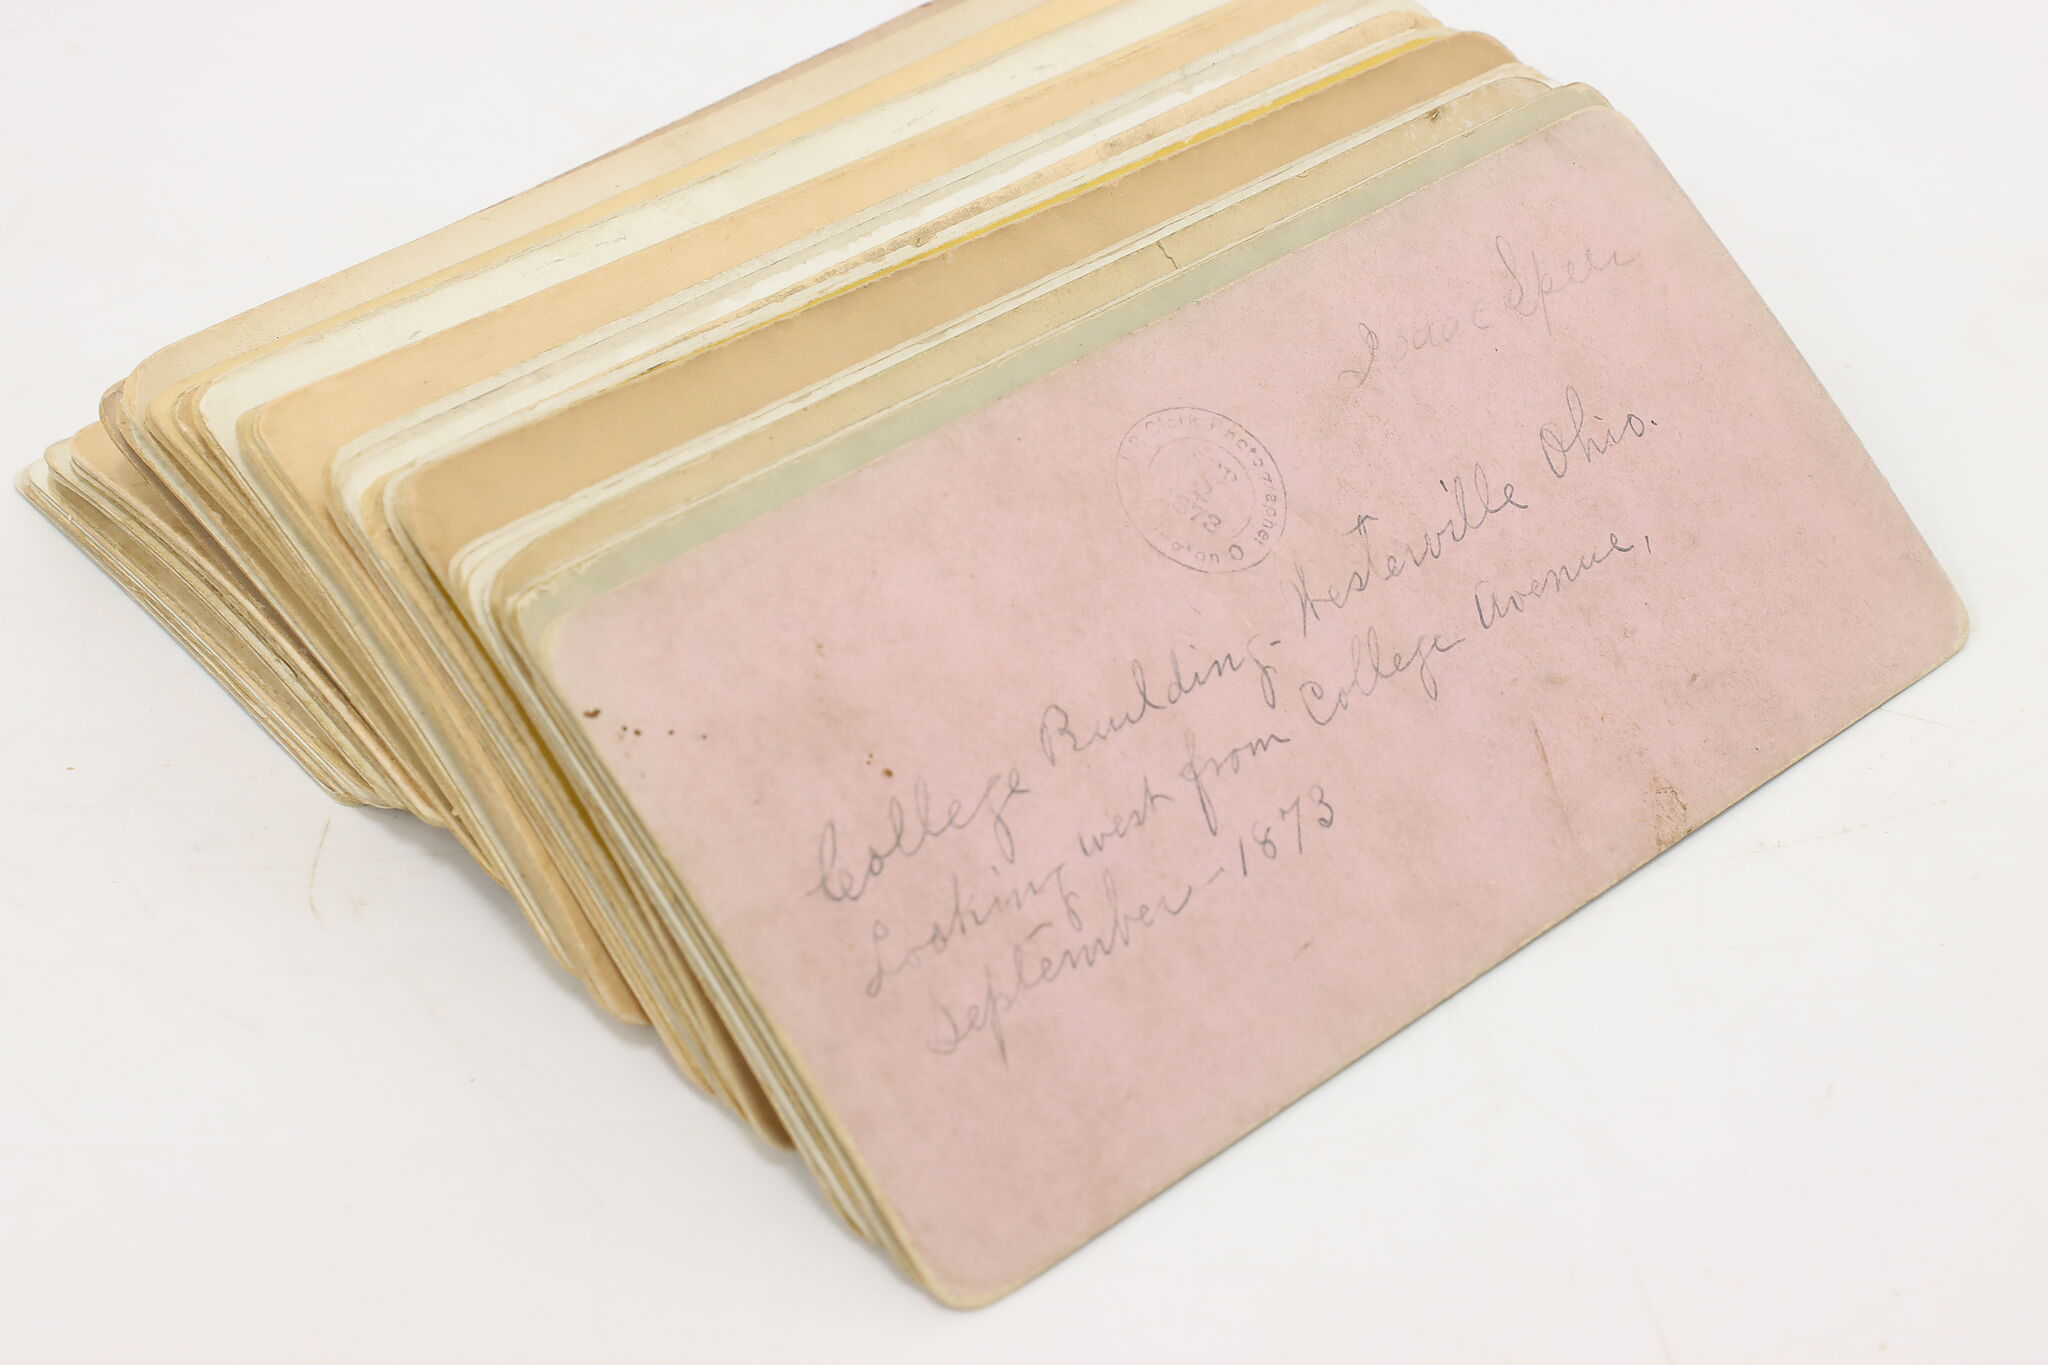 Isaac Speer
Clark Photographer
College Building - Westerville Ohio.
Looking west from College Avenue,
September - 1873